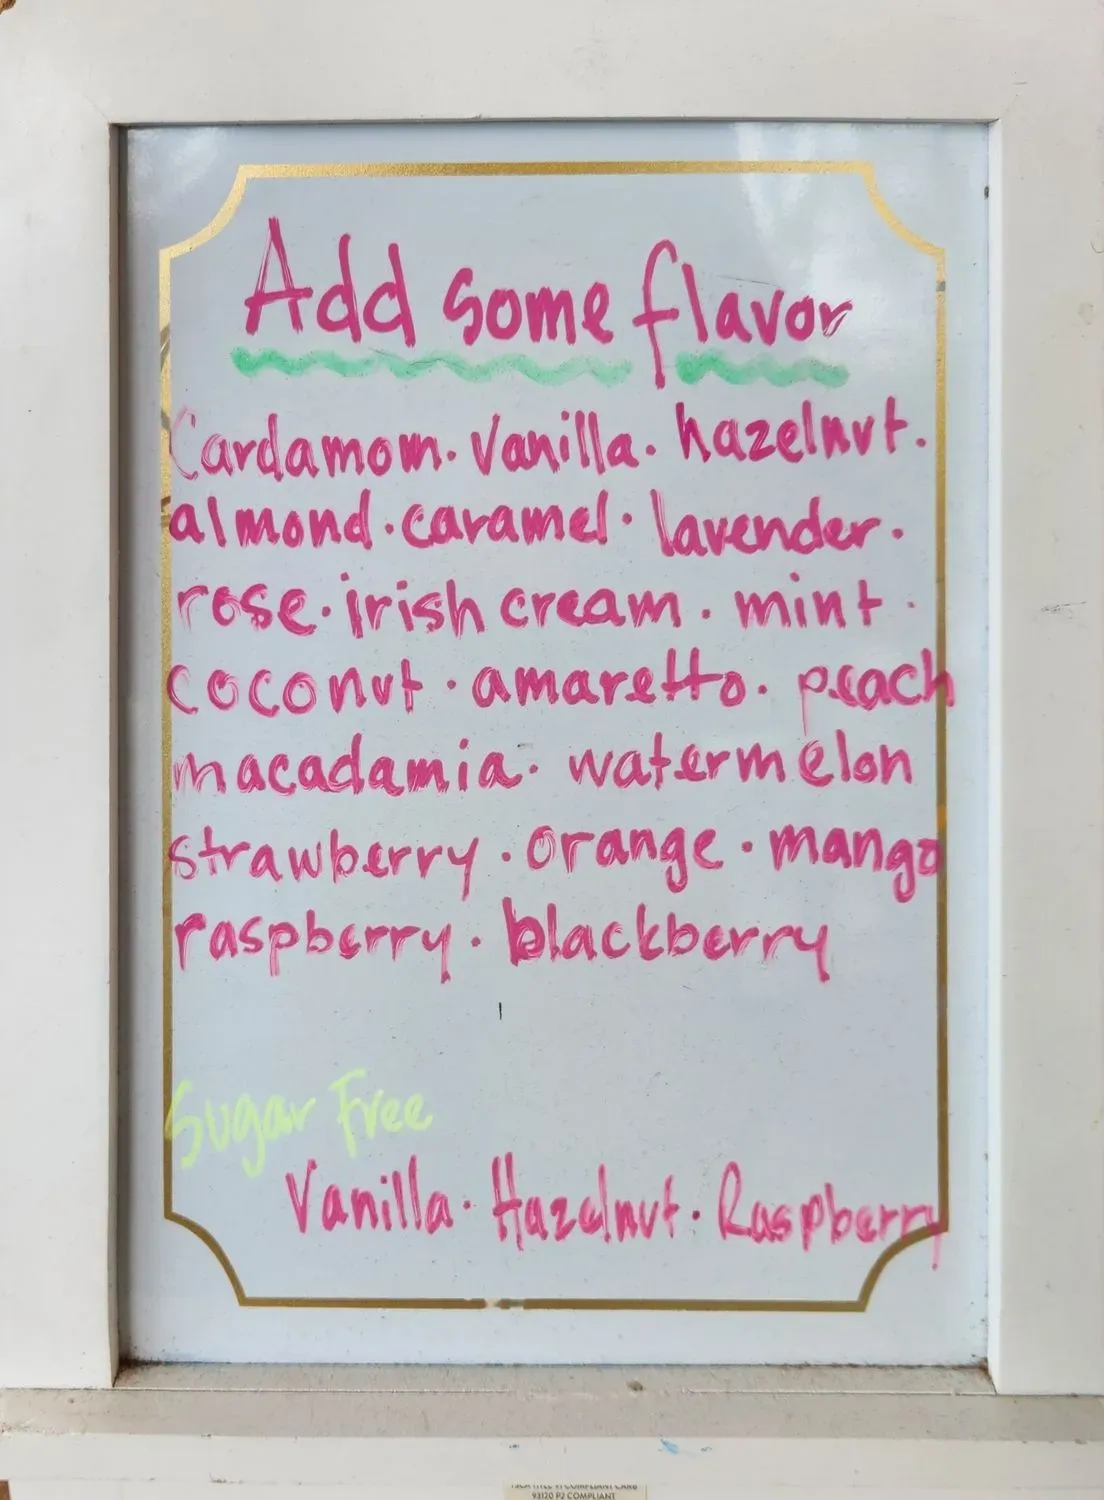 Add some flavor
Cardamom · Vanilla · hazelnut ·
almond · caramel · lavender ·
rose · irish cream · mint ·
coconut · amaretto · peach
macadamia · watermelon
strawberry · orange · mango
raspberry · blackberry
Sugar Free
Vanilla · Hazelnut · Raspberry
93120 P2 COMPLIANT